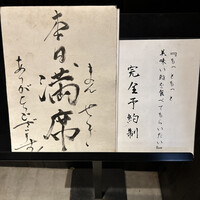 本日満席
ありがとうございます
美味い鮨を食べてもらいたい
完全予約制